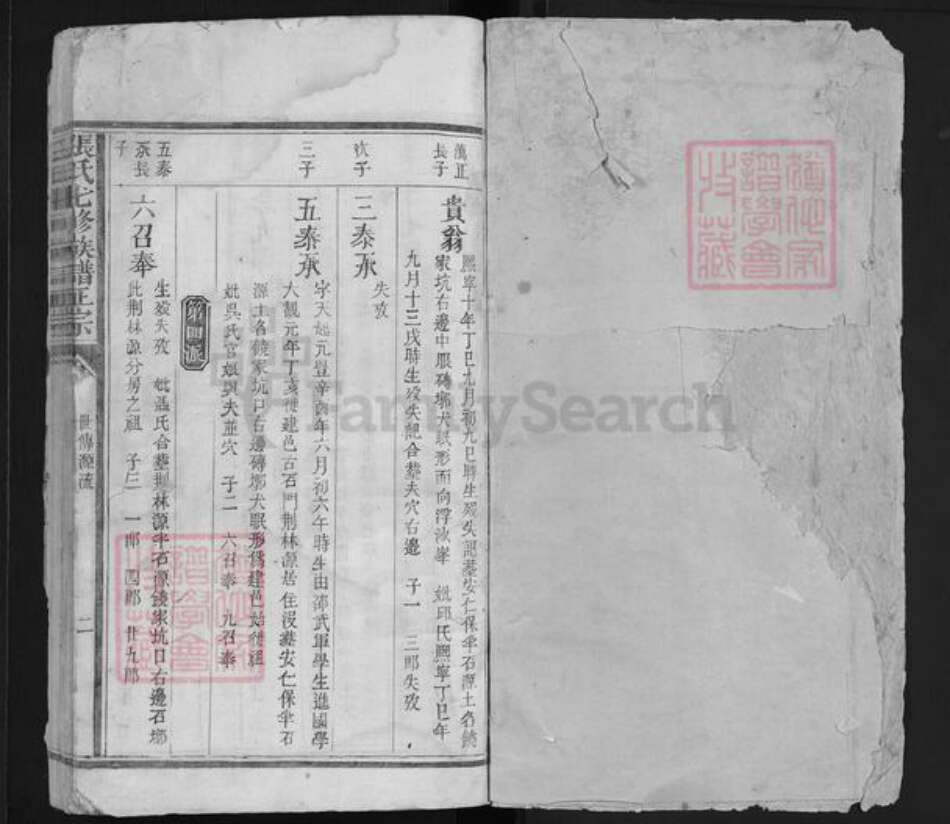 萬正
長子
貴翁
熙寧十年丁巳九月初九巳時生歿失記墓安仁保半石源土名饒
家坑右邊中眼磚塚犬眠形面向浮泳峯 妣邱氏熙寧丁巳年
九月十三戌時生歿失記合葬夫穴右邊 子一 三郎失攷
次子
三泰承
失攷
三子
五泰承
字天 元豐辛酉年六月初六午時生由邵武軍學生進國學
大觀元年丁亥徙建邑古石門荆林源居住没葬安仁保半石
源土名饒家坑口右邊磚塚犬眠形為建邑始徙祖
妣吳氏宮娘與夫並穴 子二 六召奉 九召奉
第四派
五泰
承長
子
六召奉
生歿失攷 妣聶氏合葬荆林源半石源饒家坑口右邊石塚
此荆林源分房之祖 子三 一郎 四郎 廿九郎
張氏七修族譜正宗
世傳源流
二
譜學會
收藏
FamilySearch